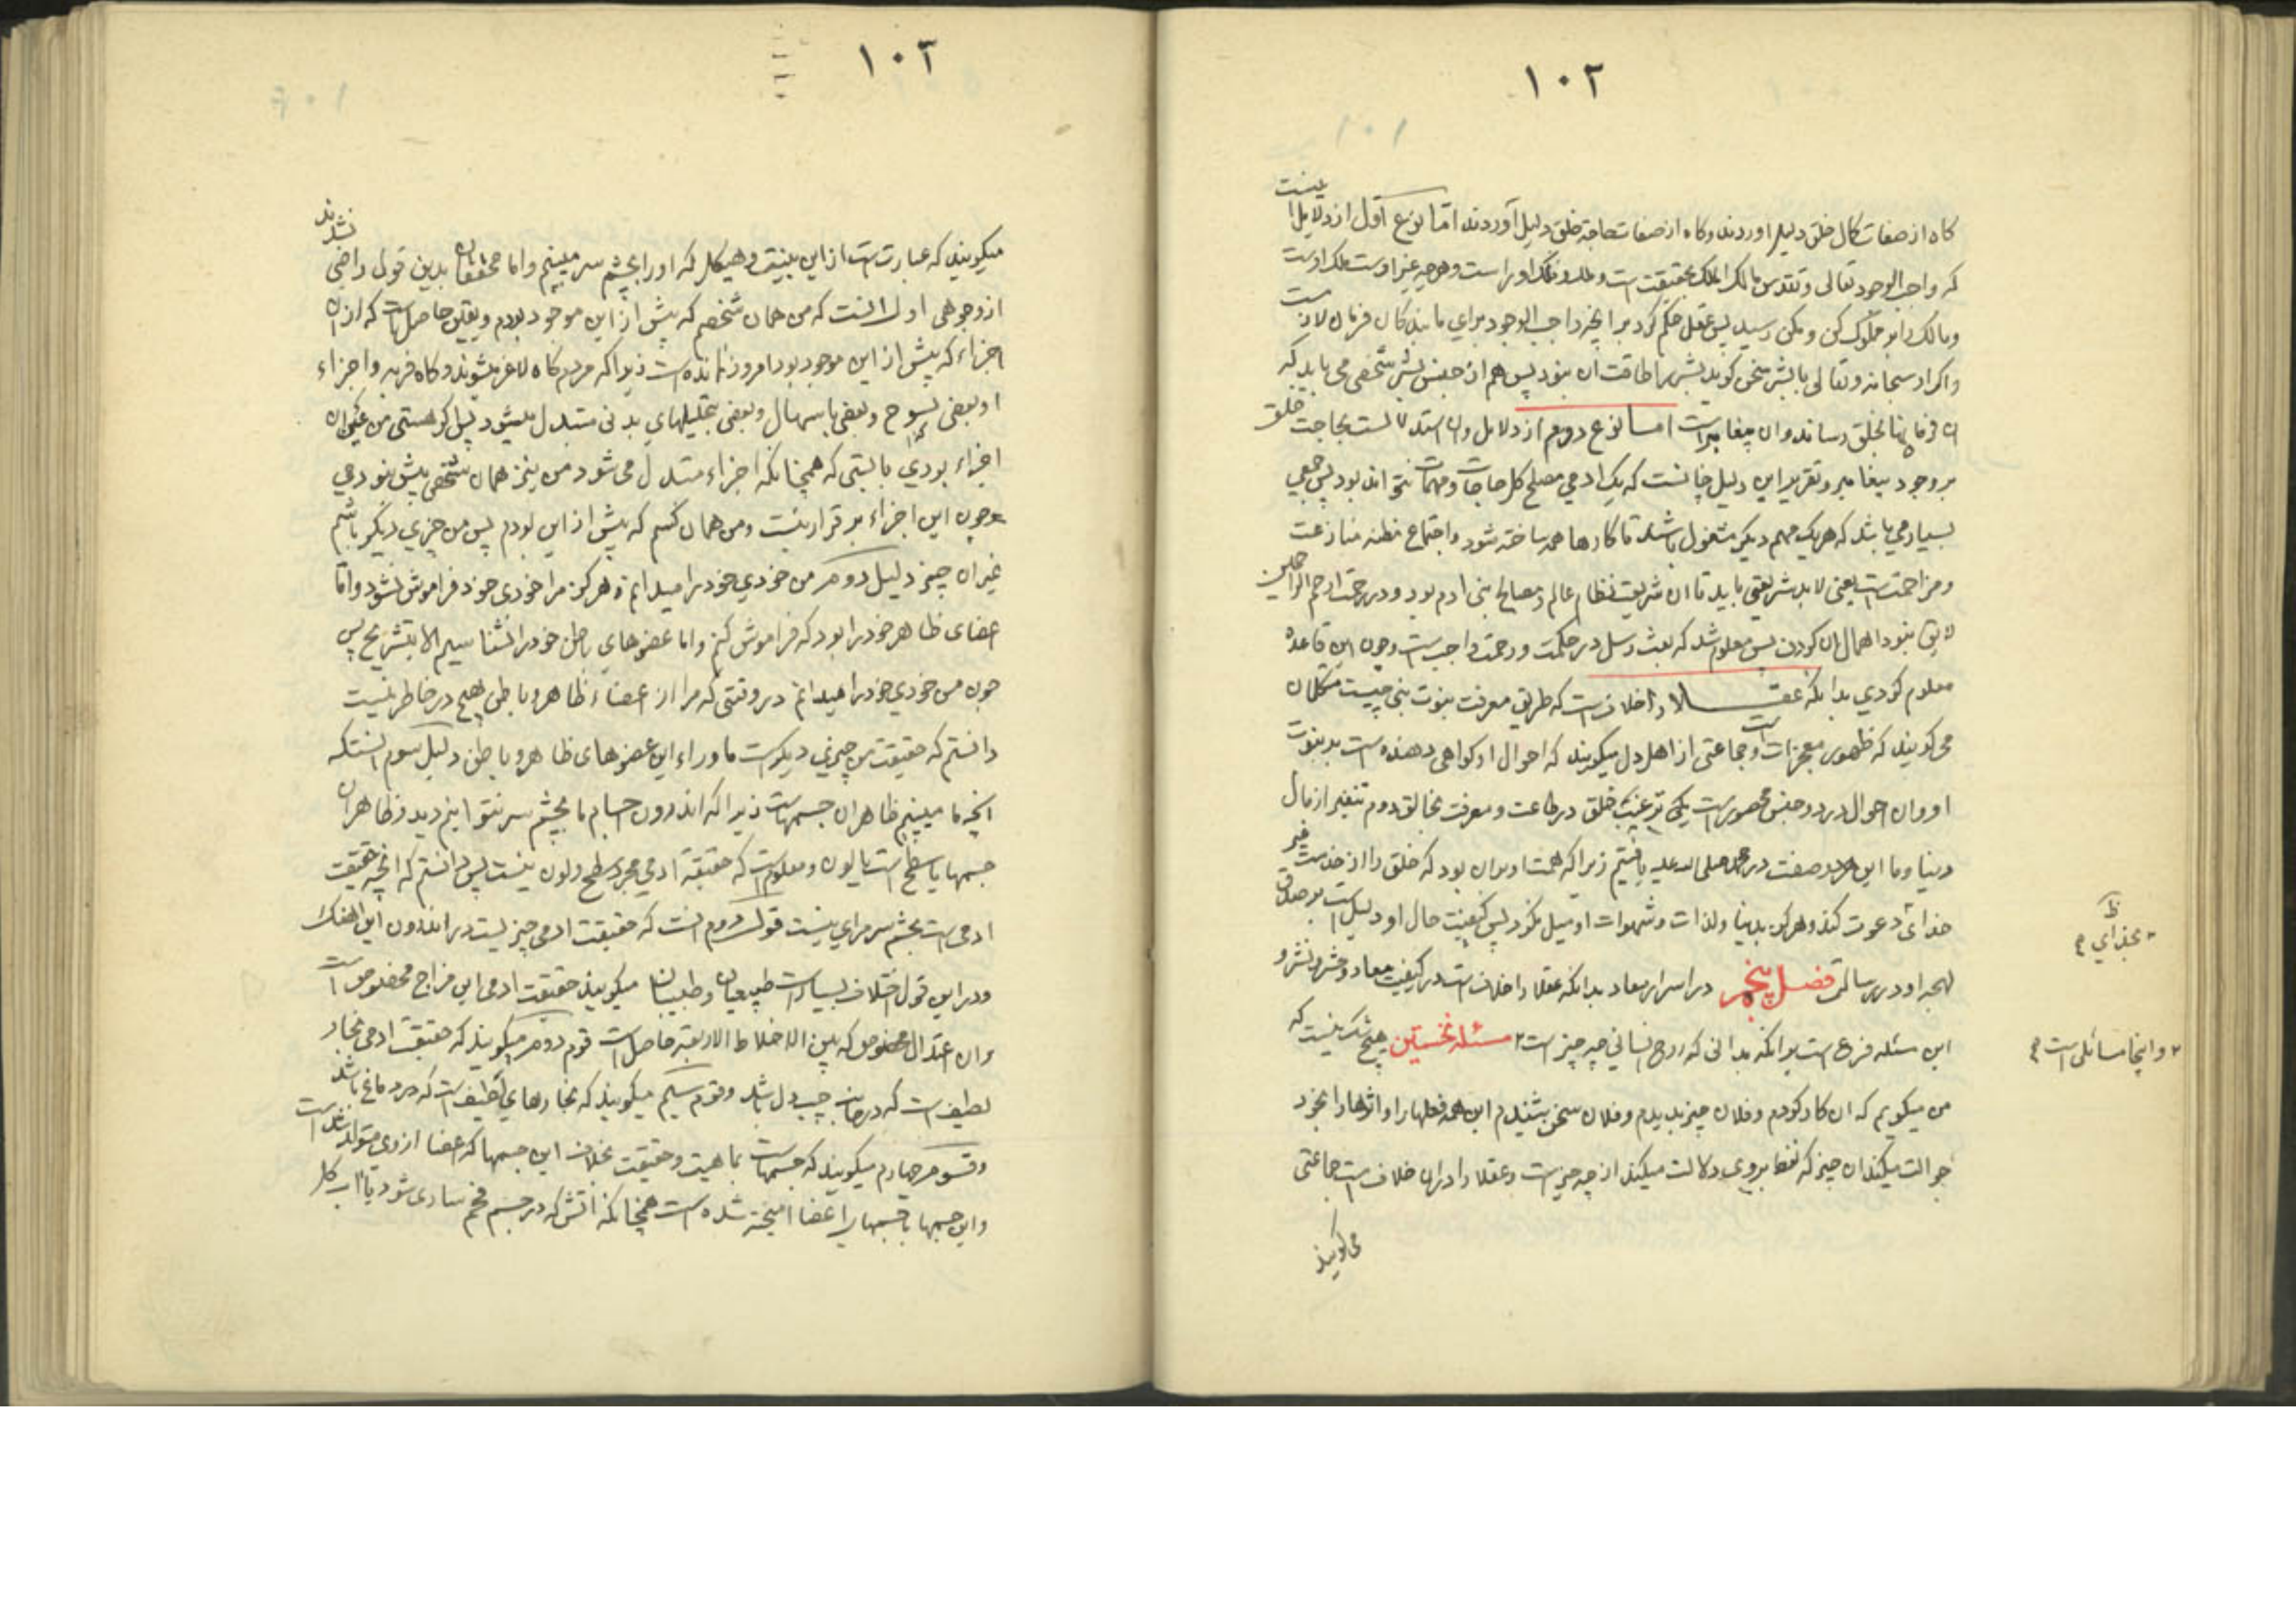 ۱۰۲
کاه از صفات کمال خلق دلیل اوردند و کاه از صفات حاجة خلق دلیل آوردند اما نوع اول از دلایل اینست
که واجب الوجود تعالی و تقدس مالک الملک بحقیقت است و ملک و ملک او راست و هرچه غیر اوست ملک اوست
و مالک را بر مملوک کن و مکن رسد پس عقل حکم کرد برانچه واجب الوجود برای ما بندکان فرمان لازمست
واکر او سبحانه وتعالی با بشر سخن کوید بشر را طاقت ان نبود پس هم از جنس بشر شخصی می باید که
ان فرمانها بخلق رساند وان پیغامبر است اما نوع دوم از دلایل وان استدلالست بحاجت خلق
بر وجود پیغامبر و تقریر این دلیل چنانست که یک ادمی مصلح کل حاجات و مهمات نتواند بود پس جمعی
بسیار می باشد که هر یک بمهم دیکر مشغول باشند تا کارها همه ساخته شود و اجتماع مظنه منازعت
ومزاحمتست یعنی لابد شریعتی باید تا ان شریعت نظام عالم و مصالح بنی ادم بود و در رحمت ارحم الراحمین
لایق نبود اهمال ان کردن پس معلوم شد که بعث رسل در حکمت و رحمت واجبست وچون این قاعده
معلوم کردی بدانکه عقلا را خلافست که طریق معرفت نبوت نبی چیست متکلمان
می کویند که ظهور معجزاتست و جماعتی از اهل دل میکویند که احوال او کواهی دهنده است بر نبوت
او وان احوال در دو جنس محصورست یکی ترغیب خلق در طاعت و معرفت خالق دوم تنفیر از مال
دنیا وما این هر دو صفت در محمد صلی الله علیه یافتیم زیرا که همت او بران بود که خلق را از خدمت غیر
خدای دعوت کند و هرکز بدنیا ولذات و شهوات او میل نکرد پس کیفیت حال او دلیلست بر صدق
لهجه او در رسالت فصل پنجم در اسرار معاد بدانکه عقلا را خلافست در کیفیت معاد و حشر و نشر و
این مسئله فرع است برانکه بدانی که روح انسانی چه چیز است ۲ مسئله نخستین هیچ شک نیست که
من میکویم که ان کار کردم و فلان چیز بدیدم و فلان سخن بشنیدم این همه فعلها را و اثرها را بخود
حوالت میکند ان چیز که لفظ بر وی دلالت میکند از چه چیز است وعقلا را دران خلاف است جماعتی
می کویند
ظ
بخدای
۲ و اینجا مسائلی است
۱۰۲
میکویند که عبارتست از این بنیت و هیکل که او را بچشم سر میبینیم واما محققان بدین قول راضی نشدند
از وجوهی اول انست که من همان شخصم که پیش از این موجود بودم و یقین حاصل است که از ان
اجزاء که پیش از این موجود بود امروز نمانده است زیرا که مردم کاه لاغر میشوند و کاه فربه و اجزاء
او بعضی و بعضی باسهال و بعضی بتحلیلهای بدنی متبدل میشود پس اکر هستی من عین ان
اجزاء بودی بایستی که همچنانکه اجزاء متبدل می شود من نیز همان شخص پیش نبودمی
وچون این اجزاء بر قرار نیست ومن همان کسم که پیش از این بودم پس من چیزی دیکر باشم
غیر ان چیز دلیل دوم من خودی خود را میدانم و هرکز مرا خودی خود فراموش نشود واما
اعضای ظاهر خود را بود که فراموش کنم واما عضوهای باطن خود را نشناسیم الا بتشریح پس
چون من خودی خود را میدانم در وقتی که مرا از اعضاء ظاهر و باطن هیچ در خاطر نیست
دانستم که حقیقت من چیزی دیکر است ما وراء این عضوهای ظاهر و باطن دلیل سوم انستکه
انچه ما میبینم ظاهر ان جسمهاست زیرا که اندرون اجسام ما بچشم سر نتوانیم دید و ظاهر ان
جسمها یا سطح است یا لون و معلومست که حقیقة ادمی مجرد سطح ولون نیست پس دانستم که انچه حقیقت
ادمی است بچشم سر مرای نیست قول دوم انست که حقیقت ادمی چیزیست در اندرون این هیکل
ودر این قول اختلاف بسیار است طبیعیان و طبیبان میکویند حقیقت ادمی این مزاج مخصوصست
وان اعتدال مخصوص که بین الاخلاط الاربعة حاصل است قوم دوم میکویند که حقیقت ادمی بخار
لطیف است که در جانب چپ دل باشد وقوم سیم میکویند که بخارهای لطیف است که در دماغ باشد
وقوم چهارم میکویند که جسمهاست بماهیت و حقیقت بخلاف این جسمها که اعضا از وی متولد شده است
واین جسمها با جسمها را اعضا امیخته شده است همچنانکه اتش که در جسم فحم ساری شود یا اب کل